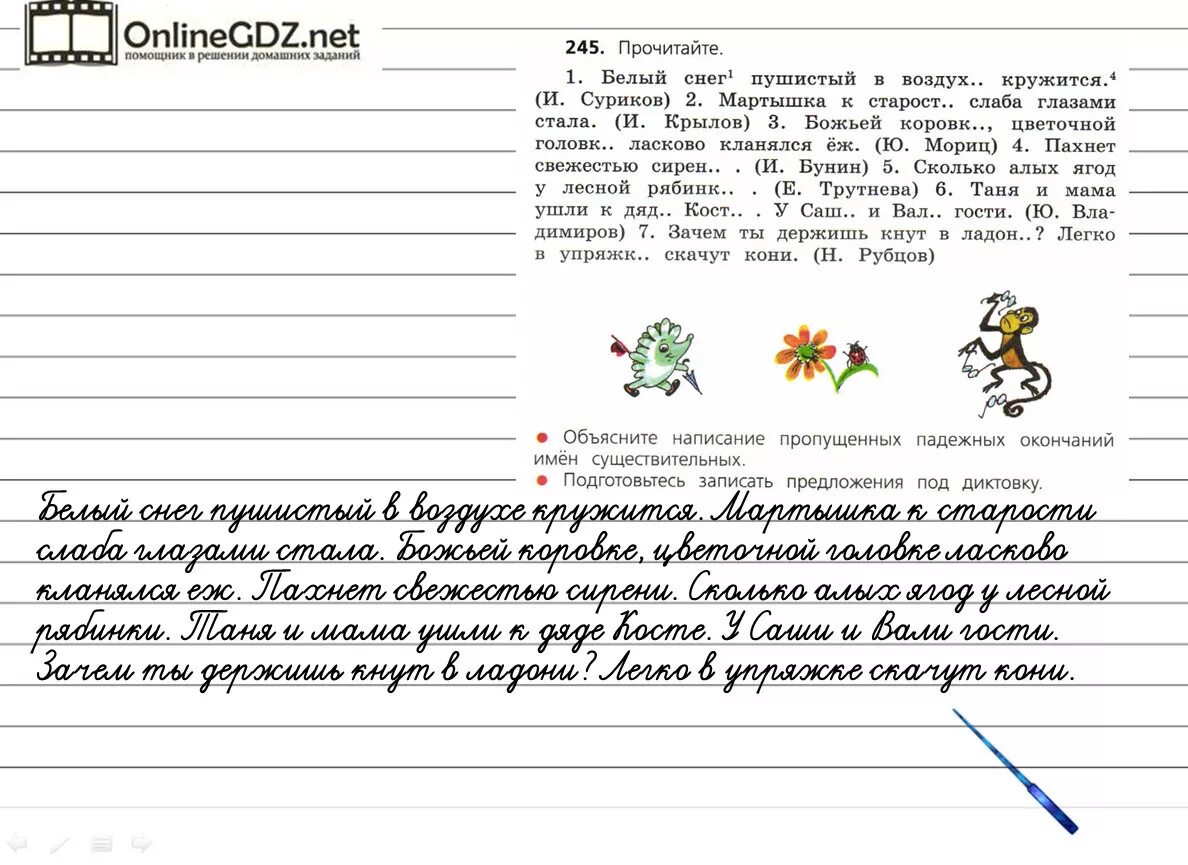 OnlineGDZ.net
помощник в решении домашних заданий
245. Прочитайте.
1. Белый снег¹ пушистый в воздух.. кружится.⁴
(И. Суриков) 2. Мартышка к старост.. слаба глазами
стала. (И. Крылов) 3. Божьей коровк.., цветочной
головк.. ласково кланялся ёж. (Ю. Мориц) 4. Пахнет
свежестью сирен.. . (И. Бунин) 5. Сколько алых ягод
у лесной рябинк.. . (Е. Трутнева) 6. Таня и мама
ушли к дяд.. Кост.. . У Саш.. и Вал.. гости. (Ю. Вла-
димиров) 7. Зачем ты держишь кнут в ладон..? Легко
в упряжк.. скачут кони. (Н. Рубцов)
• Объясните написание пропущенных падежных окончаний
имён существительных.
• Подготовьтесь записать предложения под диктовку.
Белый снег пушистый в воздухе кружится. Мартышка к старости
слаба глазами стала. Божьей коровке, цветочной головке ласково
кланялся еж. Пахнет свежестью сирени. Сколько алых ягод у лесной
рябинки. Таня и мама ушли к дяде Косте. У Саши и Вали гости.
Зачем ты держишь кнут в ладони? Легко в упряжке скачут кони.